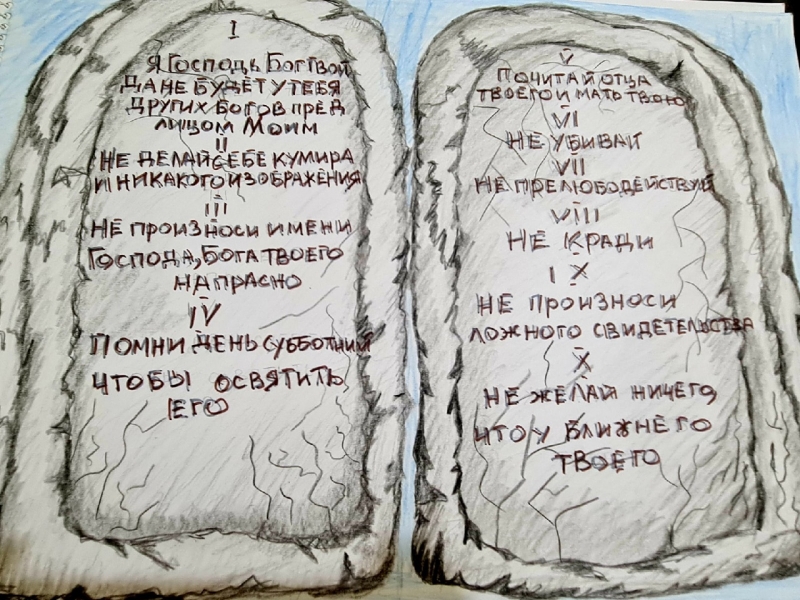 I
Я Господь Бог твой
ДА НЕ БУДЕТ У ТЕБЯ
ДРУГИХ БОГОВ ПРЕД
ЛИЦОМ МОИМ
II
НЕ ДЕЛАЙ СЕБЕ КУМИРА
И НИКАКОГО ИЗОБРАЖЕНИЯ
III
НЕ ПРОИЗНОСИ ИМЕНИ
ГОСПОДА, БОГА ТВОЕГО
НАПРАСНО
IV
ПОМНИ ДЕНЬ СУББОТНИЙ
ЧТОБЫ ОСВЯТИТЬ
ЕГО
V
ПОЧИТАЙ ОТЦА
ТВОЕГО И МАТЬ ТВОЮ
VI
НЕ УБИВАЙ
VII
НЕ ПРЕЛЮБОДЕЙСТВУЙ
VIII
НЕ КРАДИ
IX
НЕ ПРОИЗНОСИ
ЛОЖНОГО СВИДЕТЕЛЬСТВА
X
НЕ ЖЕЛАЙ НИЧЕГО,
ЧТО У БЛИЖНЕГО
ТВОЕГО